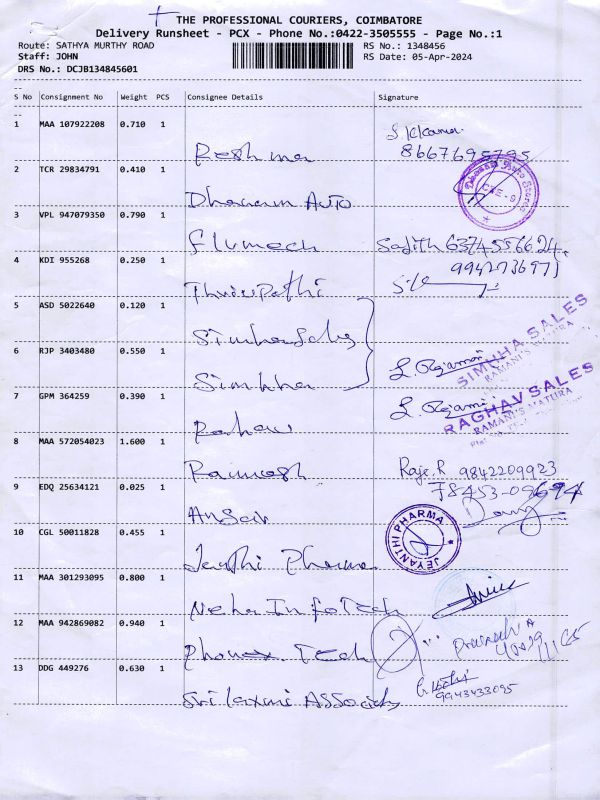 THE PROFESSIONAL COURIERS, COIMBATORE
Delivery Runsheet - PCX - Phone No.:0422-3505555 - Page No.:1
Route: SATHYA MURTHY ROAD RS No.: 1348456
Staff: JOHN RS Date: 05-Apr-2024
DRS No.: DCJB134845601
S No Consignment No Weight PCS Consignee Details Signature
1 MAA 107922208 0.710 1
Reshma 8667695795
2 TCR 29834791 0.410 1
Dhanam Auto
3 VPL 947079350 0.790 1
Flumech Sajith 6374556624
4 KDI 955268 0.250 1 9942736971
Thirupathi
5 ASD 5022640 0.120 1
Simha Sales
SIMHA SALES
RAMANI'S MAYURA
6 RJP 3403480 0.550 1
Simhha L. Rajamani
7 GPM 364259 0.390 1
Raghav L. Rajamani
RAGHAV SALES
RAMANI'S MAYURA
8 MAA 572054023 1.600 1
Ramesh Raje.R 9842209923
9 EDQ 25634121 0.025 1 78453-09694
Ansar
10 CGL 50011828 0.455 1
JEYANTHI PHARMA
Jeyathi Pharma
11 MAA 301293095 0.800 1
Neha Infotech
12 MAA 942869082 0.940 1
Phonex Tech
13 DDG 449276 0.630 1
Sri laxmi Associats 9943433095